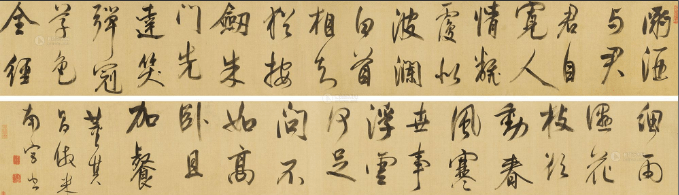 酌酒
与君
君自
寬人
情翻
覆似
波瀾
白首
相知
猶按
劍朱
門先
達笑
彈冠
草色
全經
細雨
濕花
枝欲
動春
風寒
世事
浮雲
何足
問不
如高
卧且
加餐
董其
昌倣米
南宮书